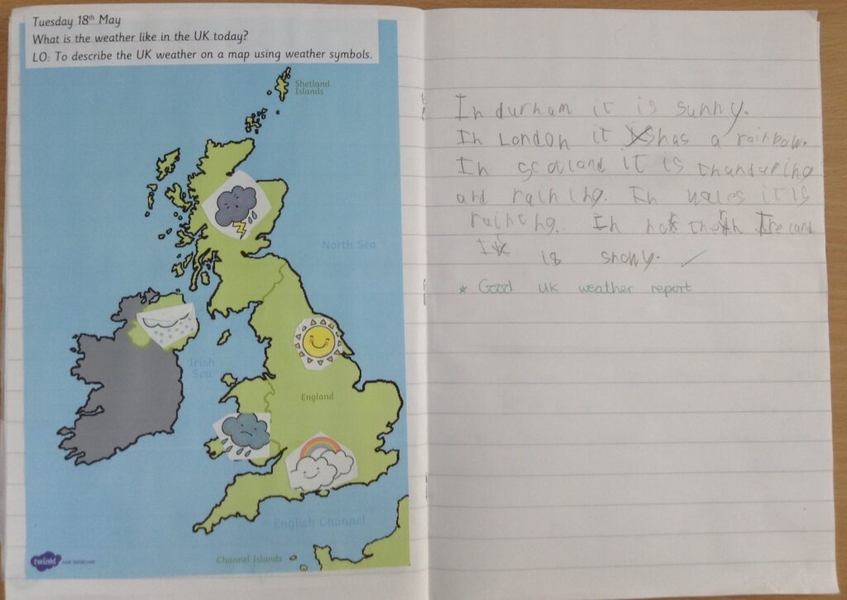 Tuesday 18th May
What is the weather like in the UK today?
LO: To describe the UK weather on a map using weather symbols.
Shetland
Islands
North Sea
Irish
Sea
England
English Channel
Channel Islands
twinkl
In durham it is sunny.
In London it has a rainbow.
In scotland it is thunduring
and raining. In wales it is
raining. In
is snowy. ✓
* Good UK weather report